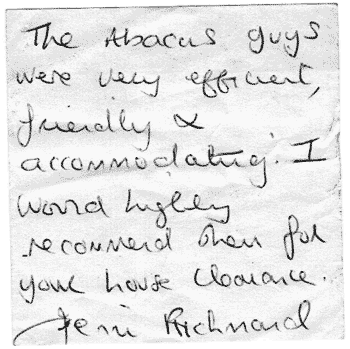 The Abacus guys
were very efficient,
friendly &
accommodating. I
would highly
recommend them for
your house clearance.
Jerri Richmond